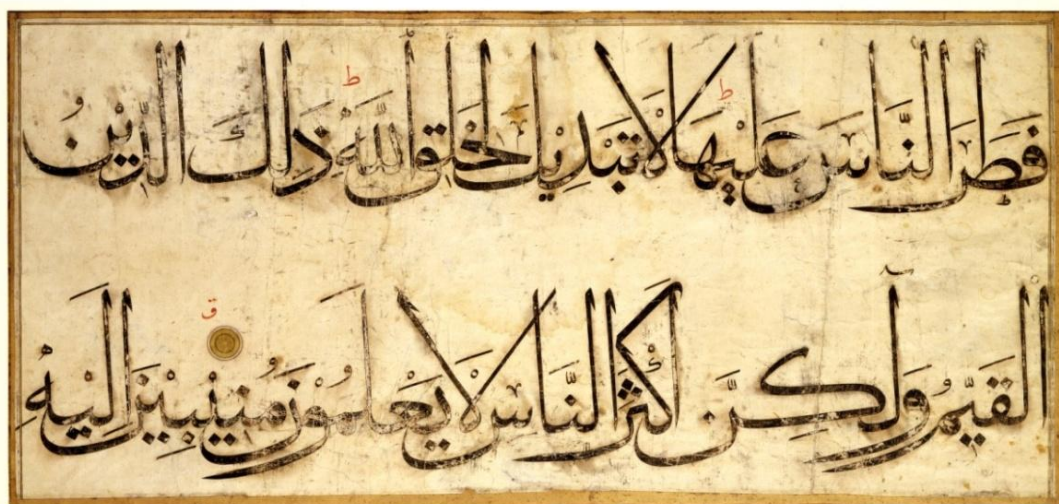 فَطَرَ النَّاسَ عَلَيْهَا ط لَا تَبْدِيلَ لِخَلْقِ اللَّهِ ط ذَلِكَ الدِّينُ
الْقَيِّمُ وَلَٰكِنَّ أَكْثَرَ النَّاسِ لَا يَعْلَمُونَ ق مُنِيبِينَ إِلَيْهِ